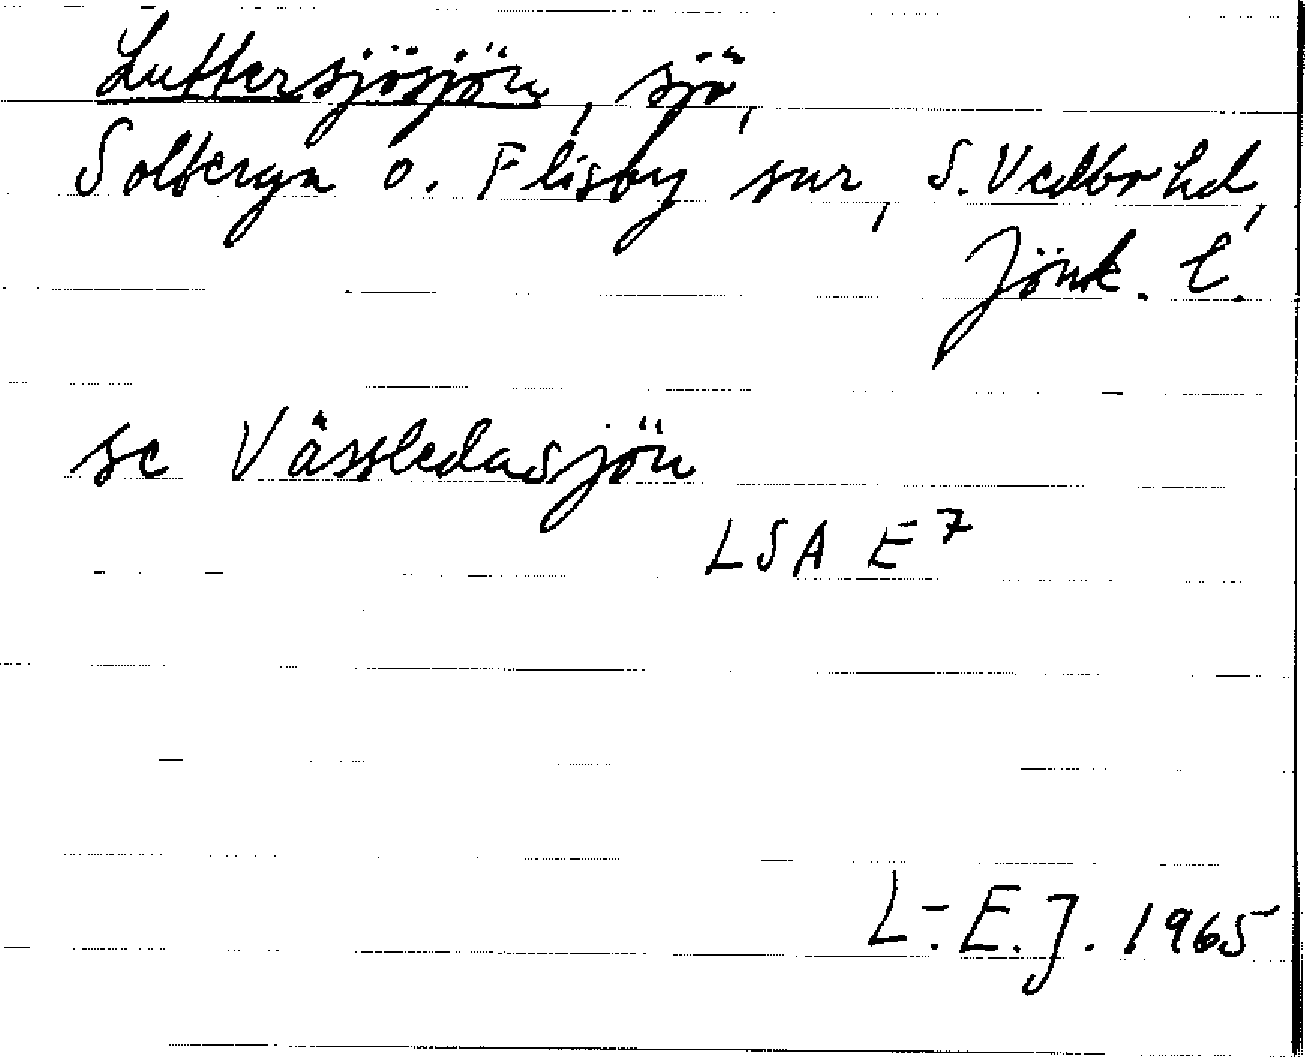 Luttersjösjön, sjö,
Solberga o. Flisby snr, S. Vedbo hd,
Jönk. l.
se Vässledasjön
LSA E7
L.-E.J. 1965